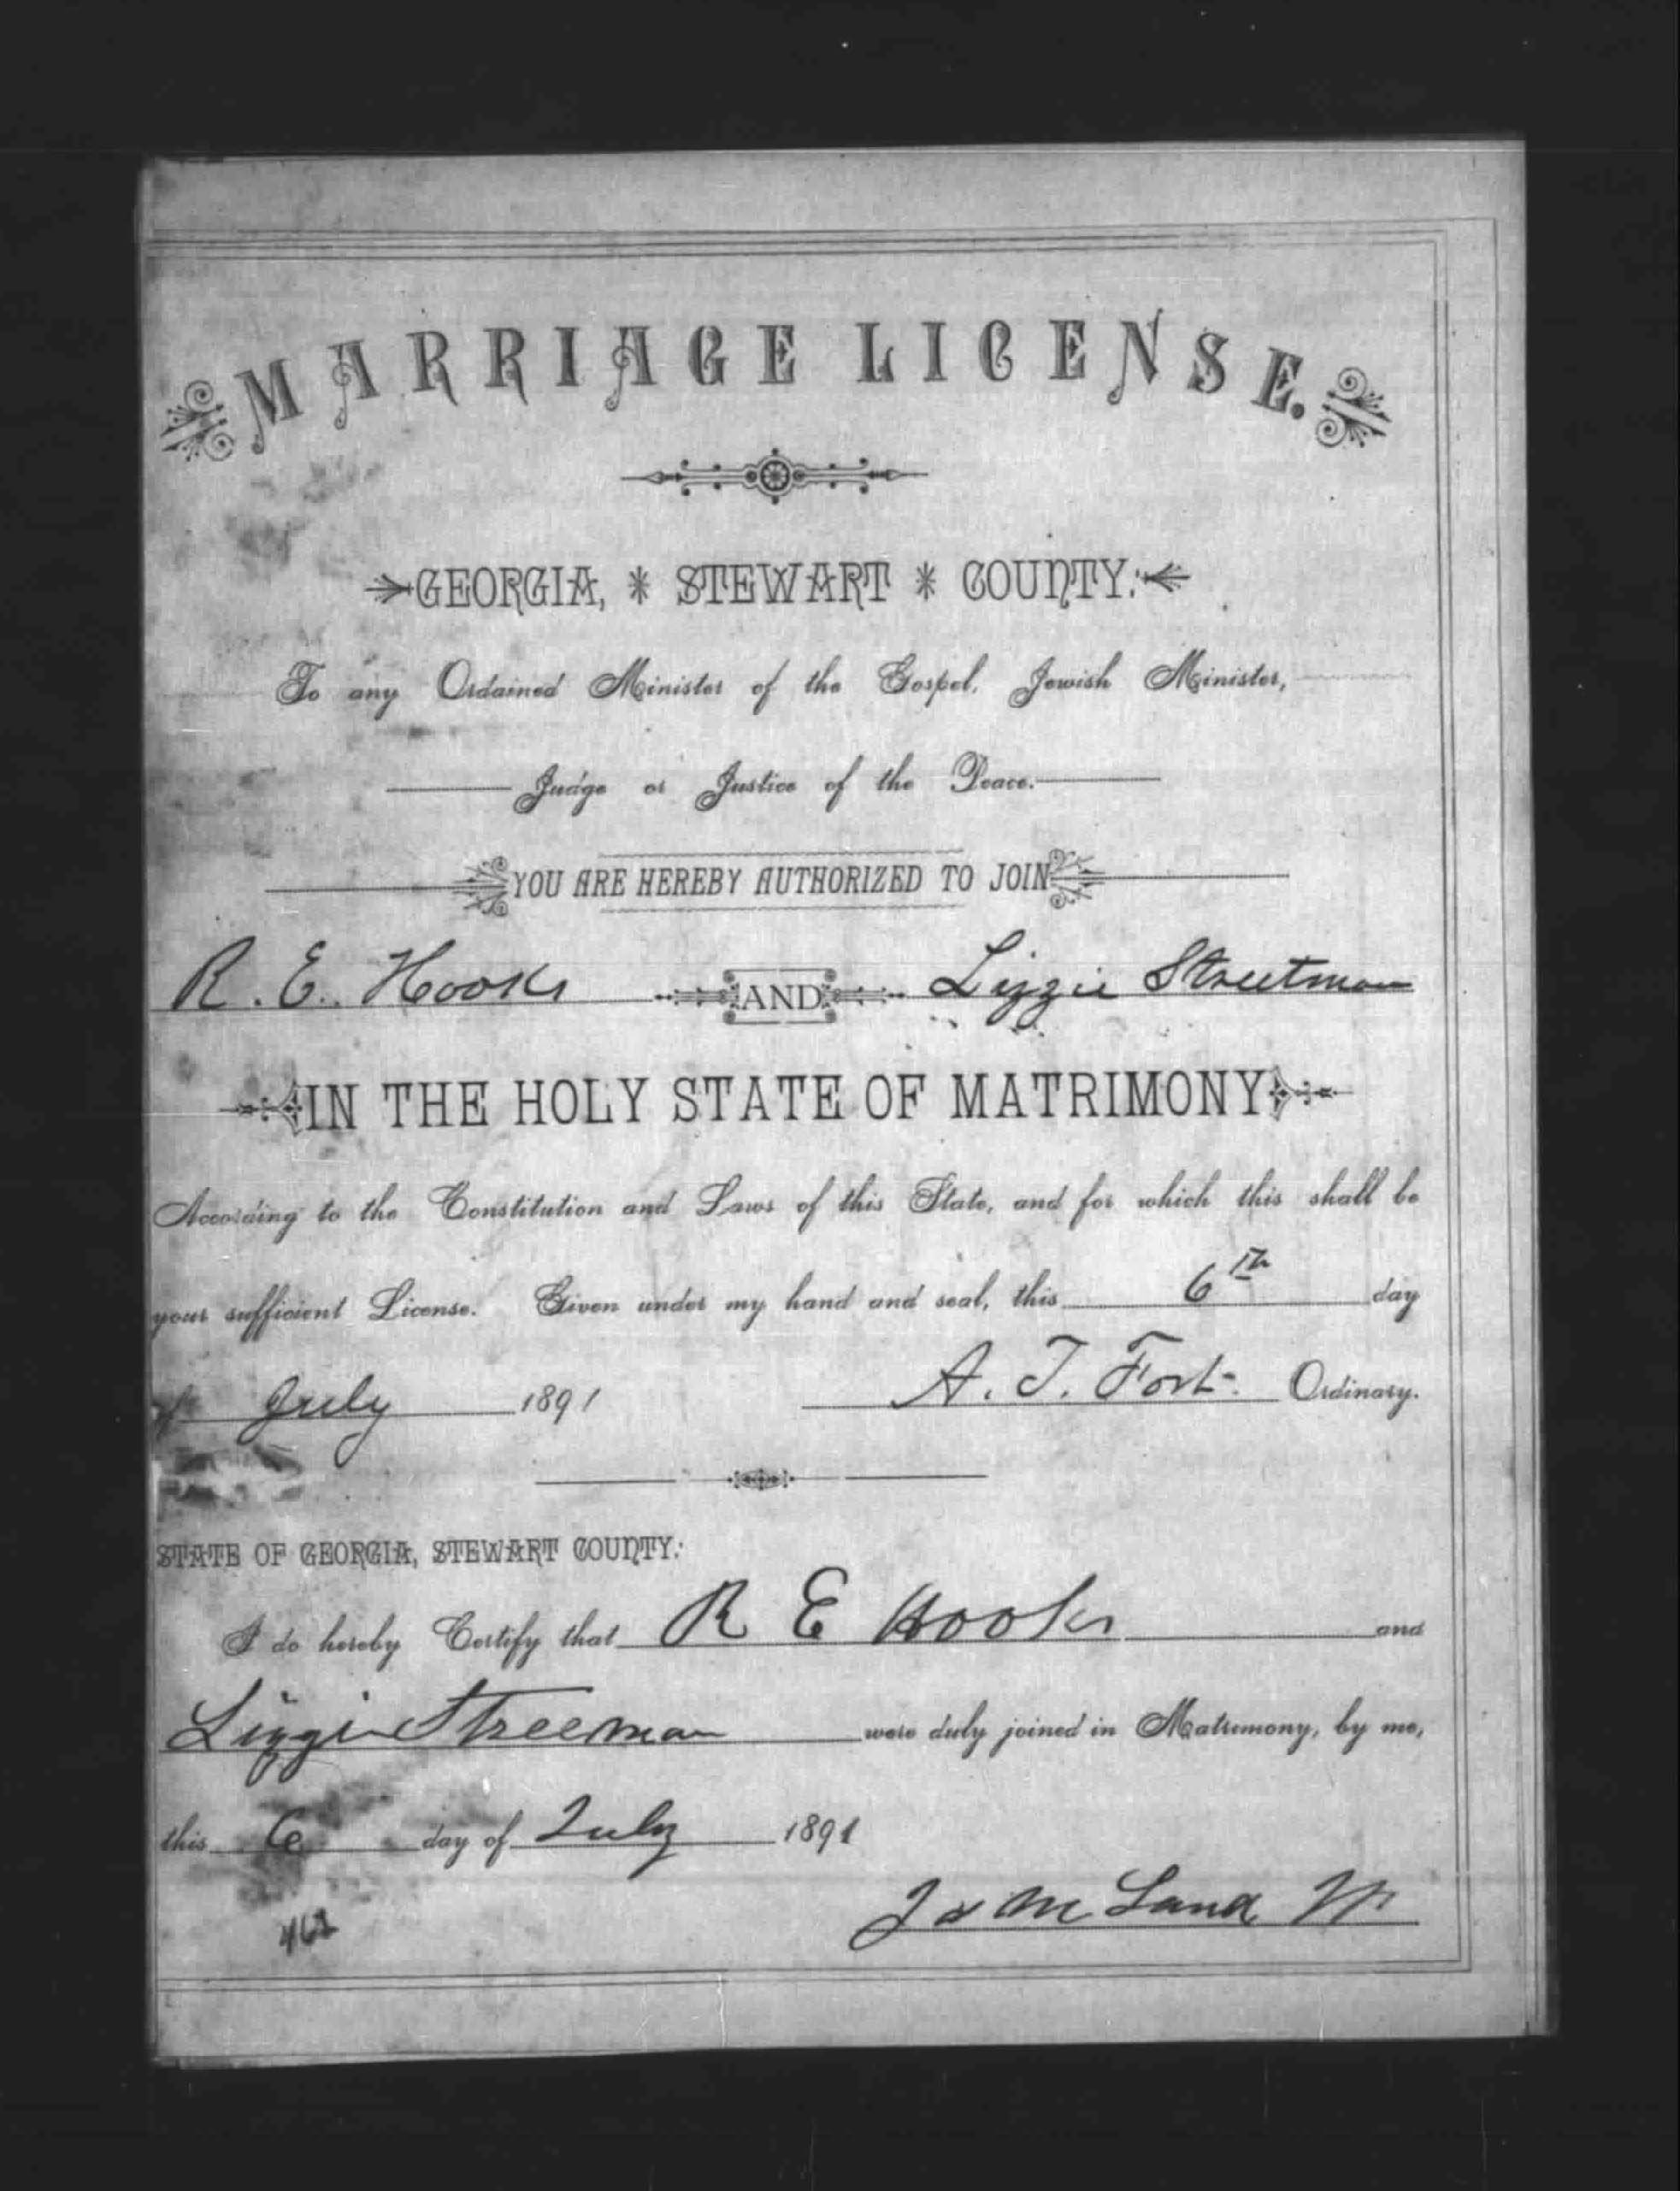 MARRIAGE LICENSE.
GEORGIA, * STEWART * COUNTY:
To any Ordained Minister of the Gospel, Jewish Minister,
Judge or Justice of the Peace.
YOU ARE HEREBY AUTHORIZED TO JOIN
R. E. Hooks AND Lizzie Streetman
IN THE HOLY STATE OF MATRIMONY
According to the Constitution and Laws of this State, and for which this shall be
your sufficient License. Given under my hand and seal, this 6th day
of July 1891 A. T. Fort Ordinary.
STATE OF GEORGIA, STEWART COUNTY:
I do hereby Certify that R E Hooks and
Lizzie Streeman were duly joined in Matrimony, by me,
this 6 day of July 1891
Land